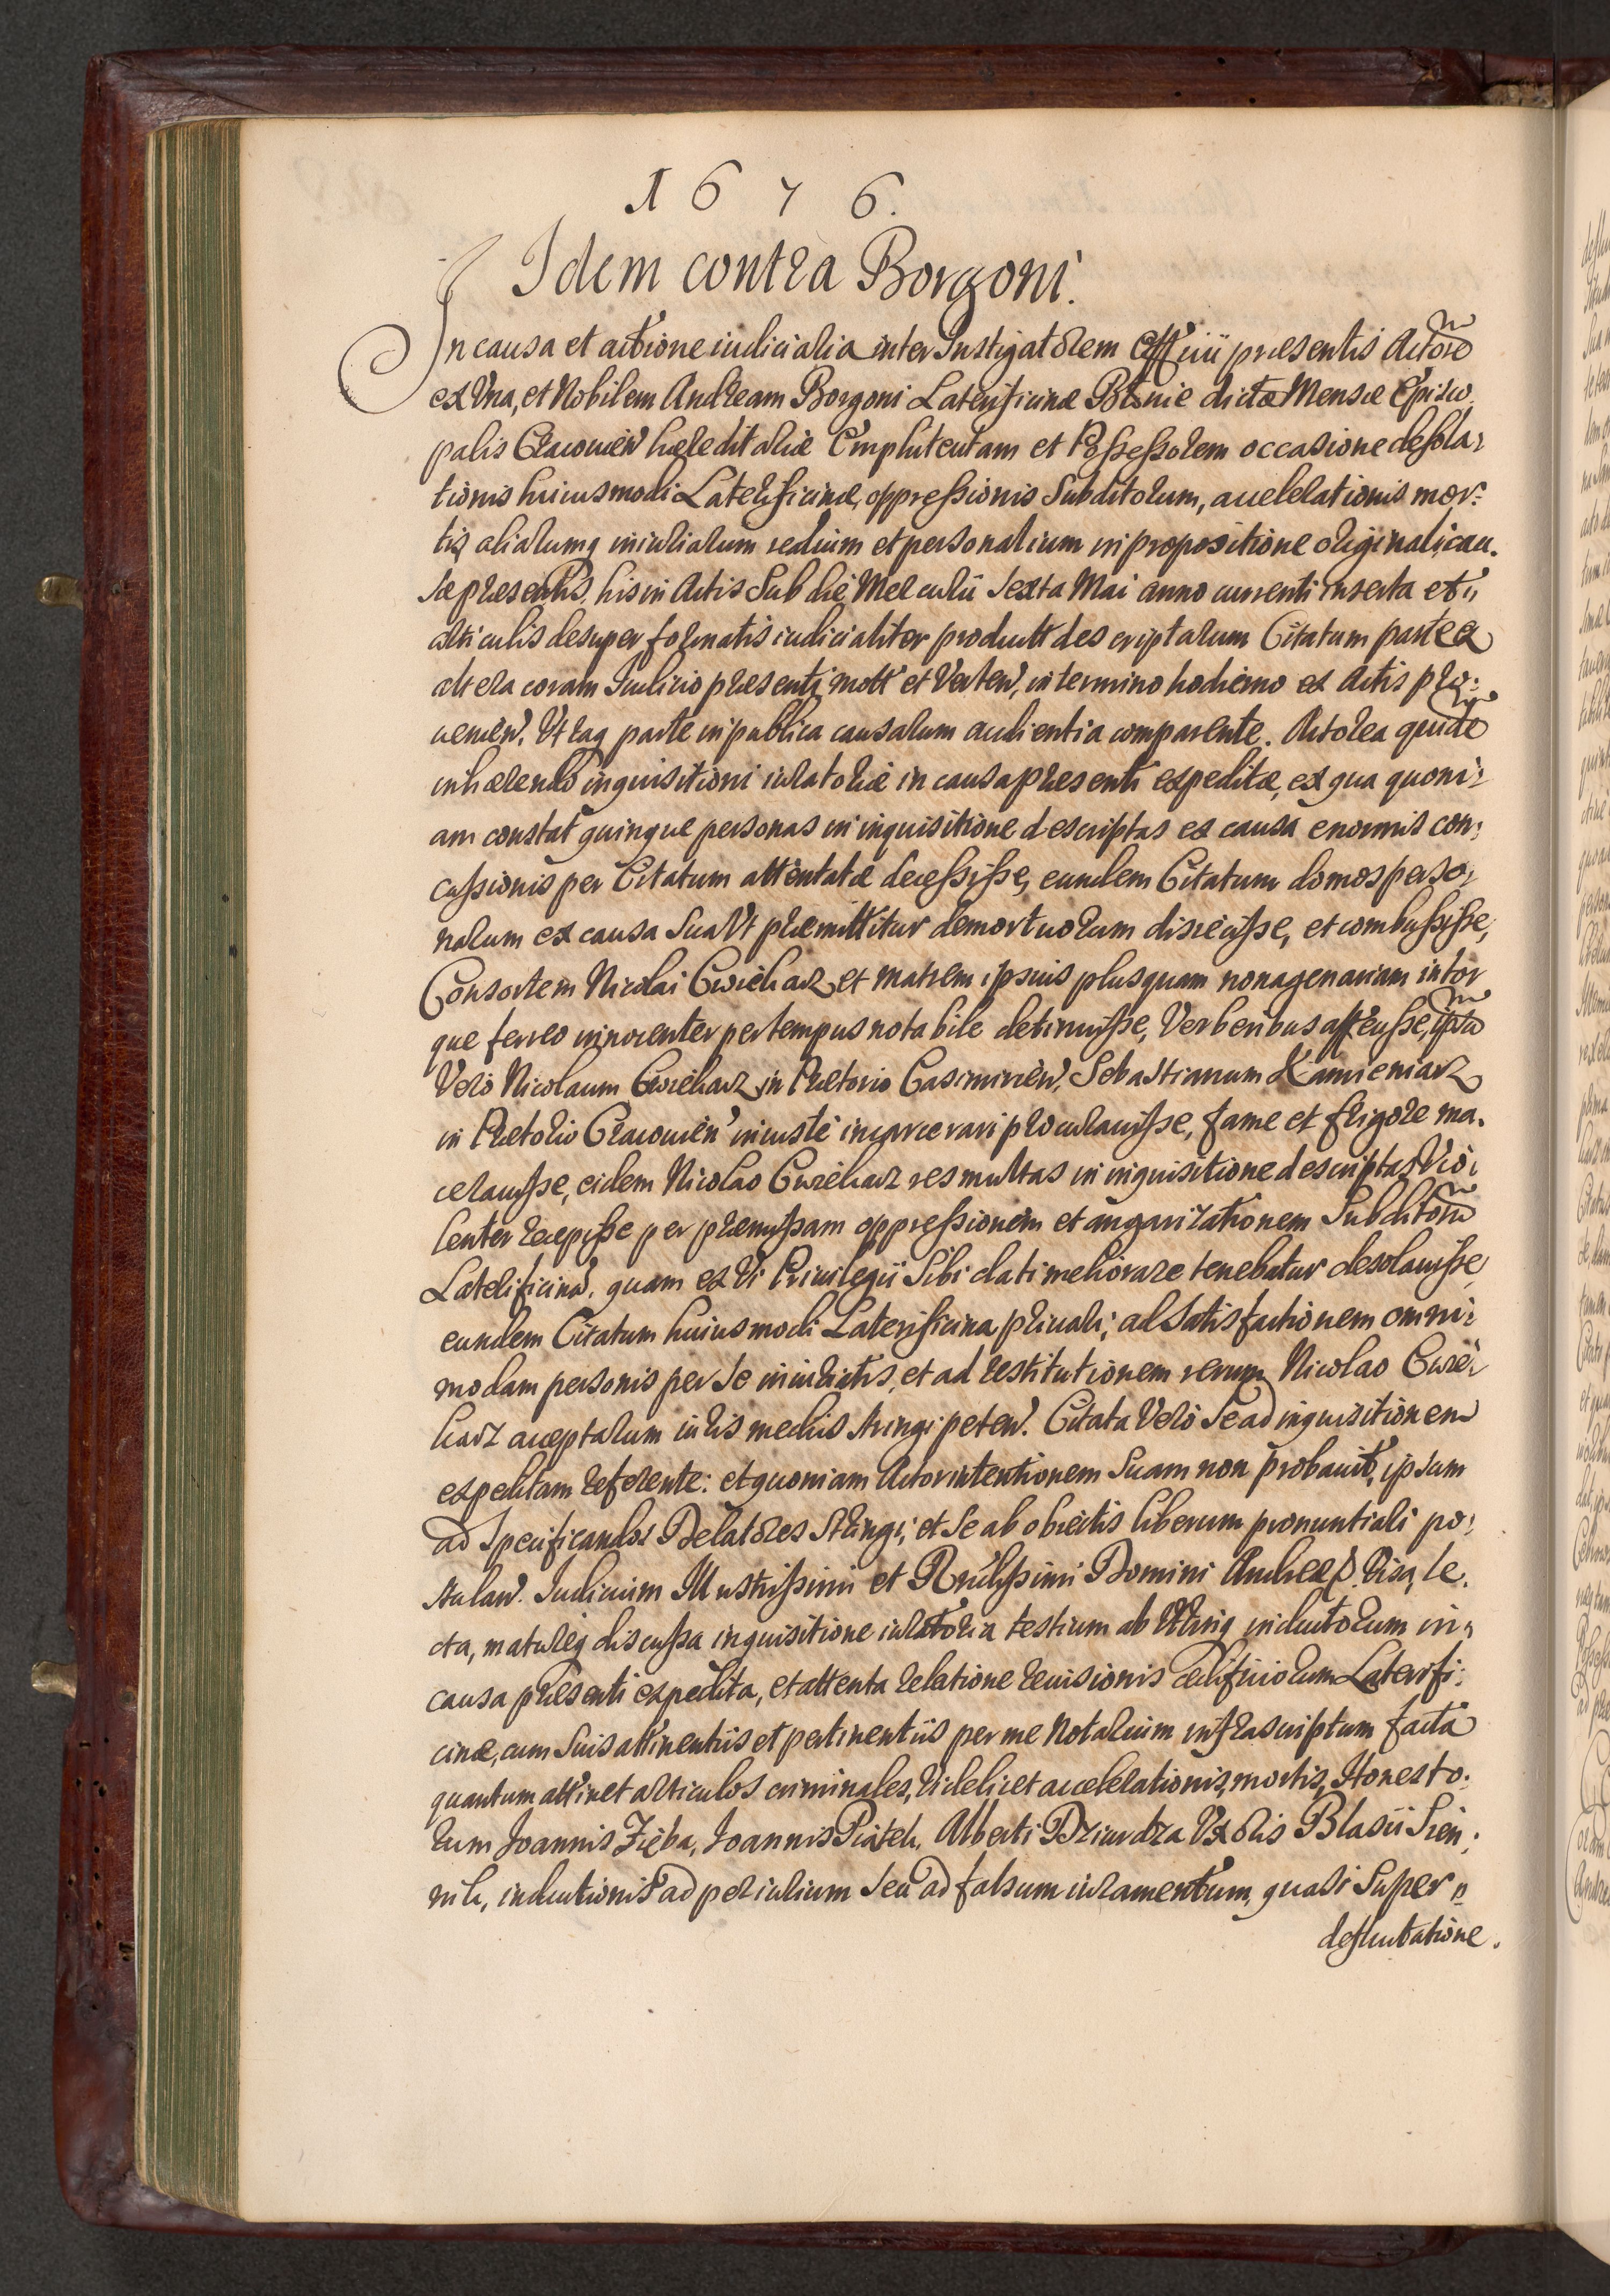 1 6 7 6.
Idem contra Borgoni.
In causa et actione iudiciaria inter Instigatorem Officii præsentis Actorẽ
ex Vna, et Nobilem Andream Borgoni Laterificinæ Botnie dictæ Mensæ Episco
palis Cracouien hæreditariæ Emphiteutam et Possessorem occasione desola-
tionis huiusmodi Laterificinæ, oppressionis Subditorum, accelerationis mor-
tis, aliarumq iniuriarum realium et personalium in propositione originali cau-
sæ præsentis, his in Actis Sub die Mercurii Sexta Mai anno currenti inserta et
articulis desuper formatis iudicialiter product descriptarum Citatum parte ex
altera coram Iudicio præsenti mott et Verten, in termino hodierno ex Actis pro-
uenien. Vtraq parte in publica causarum audientia comparente. Actorea quidẽ
inhærendo inquisitioni iuratoriæ in causa præsenti expeditæ, ex qua quoni-
am constat quinque personas in inquisitione descriptas ex causa enormis con-
cussionis per Citatum attentatæ decessisse, eundem Citatum domos perso-
narum ex causa Sua Vt præmittitur demortuorum disiecisse, et combussisse,
Consortem Nicolai Cwiekarz et matrem ipsius plusquam nonagenariam in tor
que ferreo innocenter per tempus notabile detinuisse, Verberibus affecisse, ipsũ
Verò Nicolaum Cwiekarz in Prætorio Casimirien, Sebastianum Kamieniarz
in Prætorio Cracouien iniustè incarcerari procurauisse, fame et frigore ma-
cerauisse, eidem Nicolao Cwiekarz res multas in inquisitione descriptas Vio-
lenter recepisse per præmissam oppressionem et angarizationem Subditorũ
Laterificinã, quam ex Vi Priuilegii Sibi dati meliorare tenebatur desolauisse
eundem Citatum huiusmodi Laterificina priuari; ad Satisfactionem omni-
modam personis per Se iniuriatis, et ad restitutionem rerum Nicolao Cwie-
karz acceptarum iuris mediis stringi peten. Citata Verò Se ad inquisitionem
expeditam referente: et quoniam Actor intentionem Suam non probauit, ipsum
ad Specificandos Delatores Stringi, et Se ab obiectis liberum pronuntiari po-
stulan. Iudicium Illustrissimi et Rndissimi Domini Andreæ Visa, le-
cta, matureq discussa inquisitione iuratoria testium ab Vtrinq inductorum in
causa præsenti expedita, et attenta relatione reuisionis ædificiorum Laterifi-
cinæ, cum Suis attinentiis et pertinentiis per me Notarium infrascriptum facta
quantum attinet articulos criminales, Videlicet accelerationis mortis, Honesto-
rum Joannis Zięba, Joannis Piątek, Alberti Dziurdza Vxoris Blasii Sien-
nik, inductionis ad periurium Seu ad falsum iuramentum, quasi Super
defluctatione.